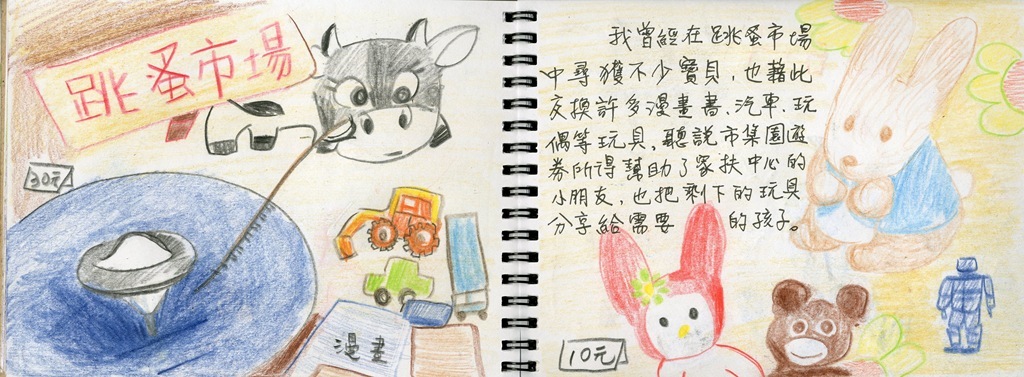 跳蚤市場
30元
漫畫
我曾經在跳蚤市場
中尋獲不少寶貝，也藉此
交換許多漫畫書、汽車、玩
偶等玩具，聽說市集園遊
券所得幫助了家扶中心的
小朋友，也把剩下的玩具
分享給需要 的孩子。
10元